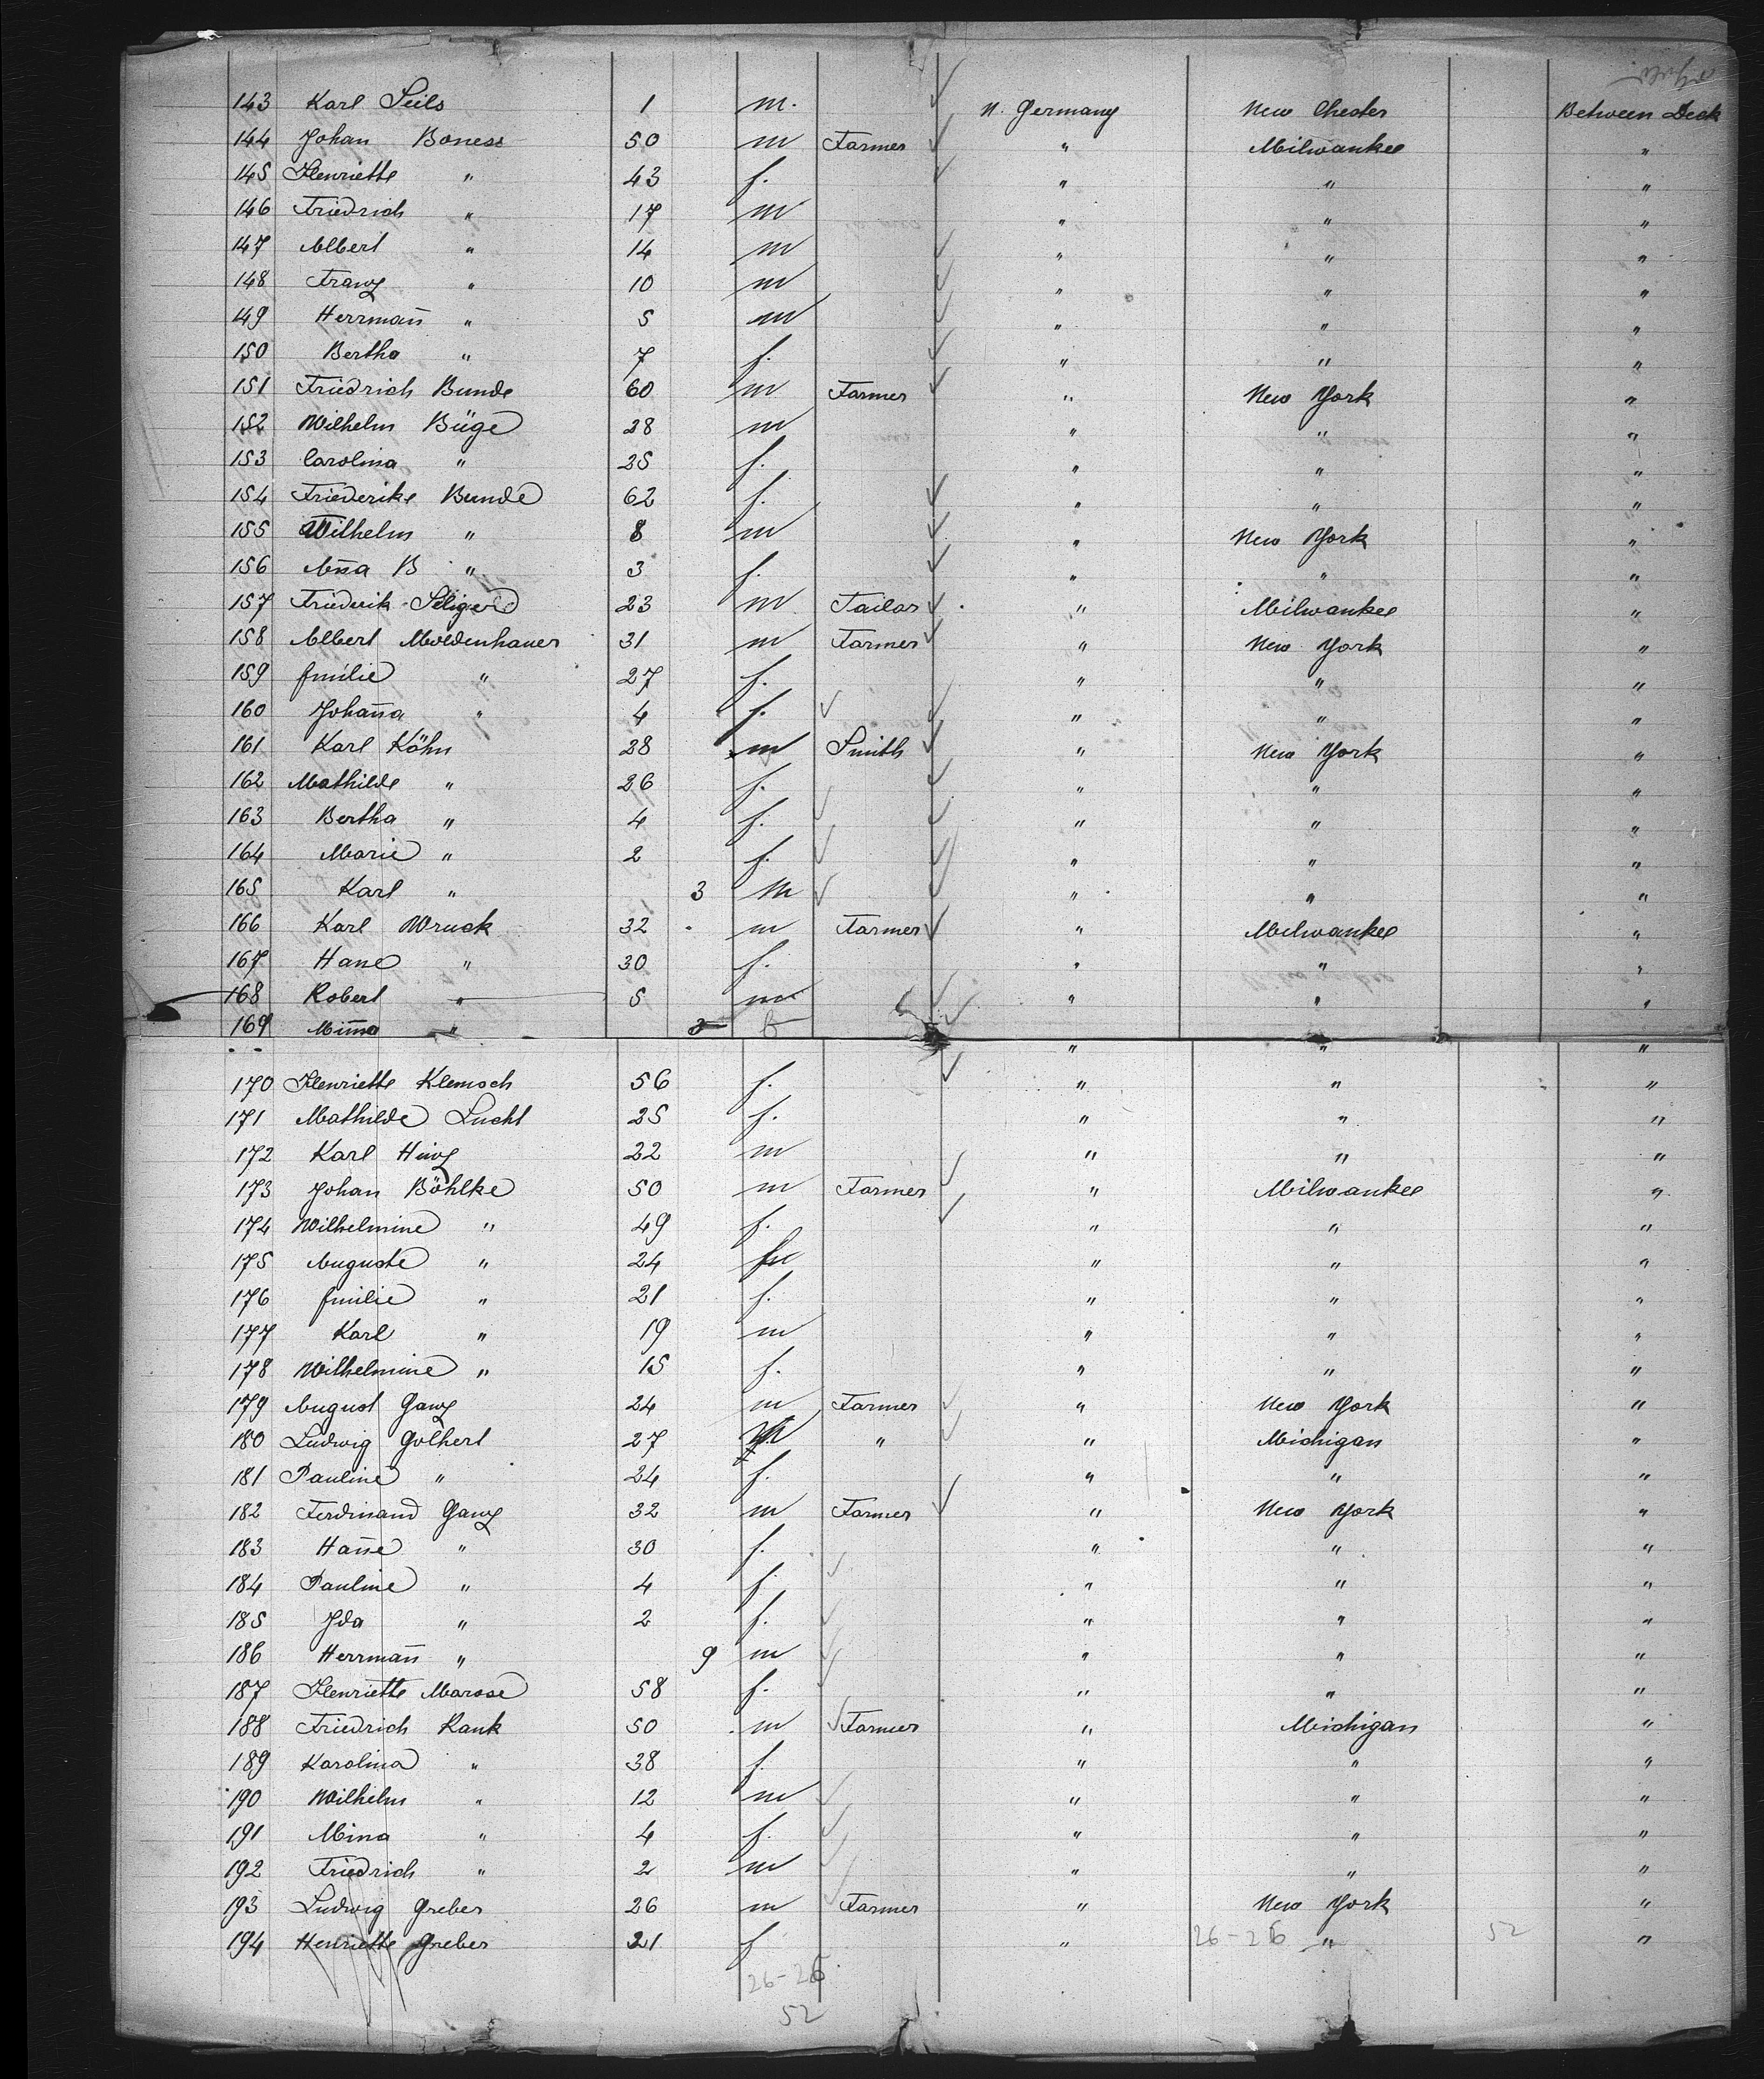 143 Karl Seils 1 m. N. Germany New Chester Between Deck
144 Johan Boness 50 m Farmer " Milwaukee "
145 Henriette " 43 f. " " "
146 Friedrich " 17 m " " "
147 Albert " 14 m " " "
148 Franz " 10 m " " "
149 Herrman̄ " 5 m " " "
150 Bertha " 7 f. " " "
151 Friedrich Bunde 60 m Farmer " New York "
152 Wilhelm Büge 28 m " " "
153 Carolina " 25 f. " " "
154 Friederike Bunde 62 f. " " "
155 Wilhelm " 8 m " New York "
156 An̄a B " 3 f. " " "
157 Friederik Seliger 23 m Tailor " Milwaukee "
158 Albert Moldenhauer 31 m Farmer " New York "
159 Emilie " 27 f. " " "
160 Johan̄a " 4 f. " " "
161 Karl Köhn 28 m Smith " New York "
162 Mathilde " 26 f. " " "
163 Bertha " 4 f. " " "
164 Marie " 2 f. " " "
165 Karl " 3 m " " "
166 Karl Wruck 32 m Farmer " Milwaukee "
167 Hane " 30 f. " " "
168 Robert " 5 m " " "
169 Min̄a " f " " "
170 Henriette Klemsch 56 f. " " "
171 Mathilde Lucht 25 f. " " "
172 Karl Hinz 22 m " " "
173 Johan Böhlke 50 m Farmer " Milwaukee "
174 Wilhelmine " 49 f. " " "
175 Auguste " 24 " " "
176 Emilie " 21 f. " " "
177 Karl " 19 m " " "
178 Wilhelmine " 15 f. " " "
179 August Ganz 24 m Farmer " New York "
180 Ludwig Golhert 27 m " " Michigan "
181 Pauline " 24 f. " " "
182 Ferdinand Ganz 32 m Farmer " New York "
183 Han̄e " 30 f. " " "
184 Pauline " 4 f. " " "
185 Ida " 2 f. " " "
186 Herrman̄ " 9 m " " "
187 Henriette Marose 58 f. " " "
188 Friedrich Rank 50 m Farmer " Michigan "
189 Karolina " 38 f. " " "
190 Wilhelm " 12 m " " "
191 Mina " 4 f. " " "
192 Friedrich " 2 m " " "
193 Ludwig Greber 26 m Farmer " New York "
194 Henriette Greber 21 f " 26-26 " 52 "
26-26
52